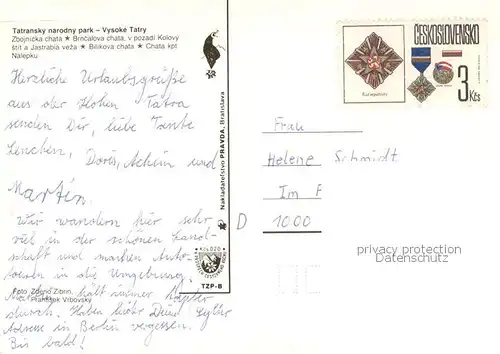 Tatranský národný park – Vysoké Tatry
Zbojnícka chata ★ Brnčalova chata, v pozadí Kolový
štít a Jastrabia veža ★ Bilíkova chata ★ Chata kpt.
Nálepku
Herzliche Urlaubsgrüße
aus der Hohen Tatra
senden Dir, liebe Tante
Lenchen, Doris, Achim und
Martin.
Wir wandern hier sehr
viel in der schönen Land-
schaft und machen Auto-
touren in die Umgebung.
hält immer
durch. Haben
in Berlin vergessen.
Bis bald!
Foto Zdeno Zibrín,
František Vrbovský
Nakladateľstvo PRAVDA, Bratislava
Kčs 0,20
TZP-B
ČESKOSLOVENSKO
3 Kčs
Frau
Helene Schmidt
Im F
D 1000
privacy protection
DATENSCHUTZ